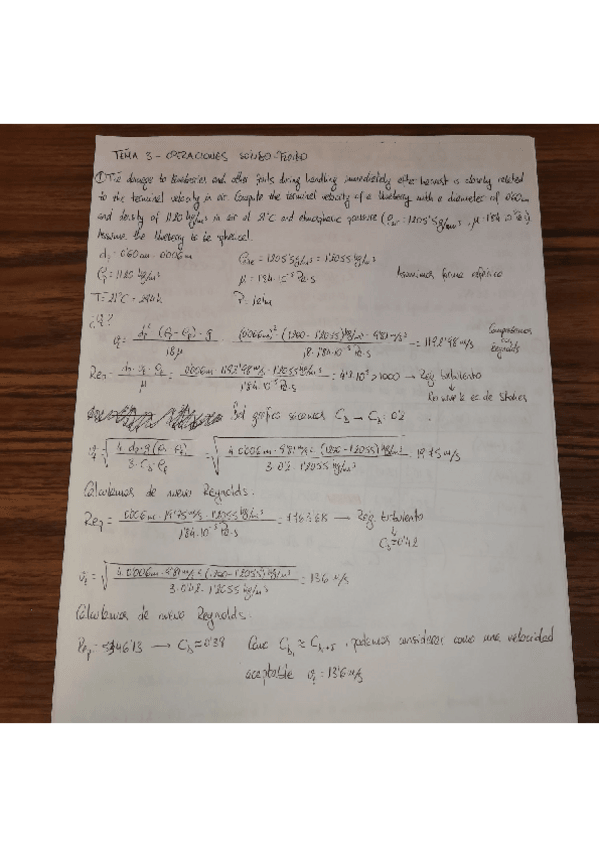 TEMA 3 - OPERACIONES SOLIDO-FLUIDO
① The damage to blueberries and other fruits during handling immediately after harvest is closely related
to the terminal velocity in air. Compute the terminal velocity of a blueberry with a diameter of 0'60cm
and density of 1120 kg/m³ in air at 21°C and atmospheric pressure (ρair: 1205'5 g/m³, μ: 1'84·10⁻⁵ Pa·s)
Assume the blueberry to be spherical.
dp = 0'60 cm = 0'006 m ρaire = 1205'5 g/m³ = 1'2055 kg/m³
ρp = 1120 kg/m³ μ = 1'84·10⁻⁵ Pa·s Asumimos forma esférica
T = 21°C = 294k P = 1 atm
¿vt?
vt = dp² (ρp - ρf)·g / 18μ = (0'006m)²·(1200 - 1'2055) kg/m³ · 9'81 m/s² / 18·1'84·10⁻⁵ Pa·s = 1192'98 m/s Comprobamos con Reynolds
Rep = dp·vt·ρf / μ = 0'006m·1192'98 m/s·1'2055 kg/m³ / 1'84·10⁻⁵ Pa·s = > 1000 → Reg. turbulento
↓
No usar la ec. de Stokes
Del gráfico sacamos CD → CD = 0'2
vt = √(4·dp·g(ρp - ρf) / 3·CD·ρf) = √(4·0'006m·9'81 m/s²·(1200 - 1'2055) kg/m³ / 3·0'2·1'2055 kg/m³) = 19'75 m/s
Calculamos de nuevo Reynolds.
Rep = 0'006m·19'75 m/s·1'2055 kg/m³ / 1'84·10⁻⁵ Pa·s = → Reg. turbulento
↓
CD ≈ 0'42
vt = √(4·0'006m·9'81 m/s²·(1200 - 1'2055) kg/m³ / 3·0'42·1'2055 kg/m³) = 13'6 m/s
Calculamos de nuevo Reynolds.
Rep = → CD ≈ 0'39 Como ≈ , podemos considerar como una velocidad
aceptable vt = 13'6 m/s